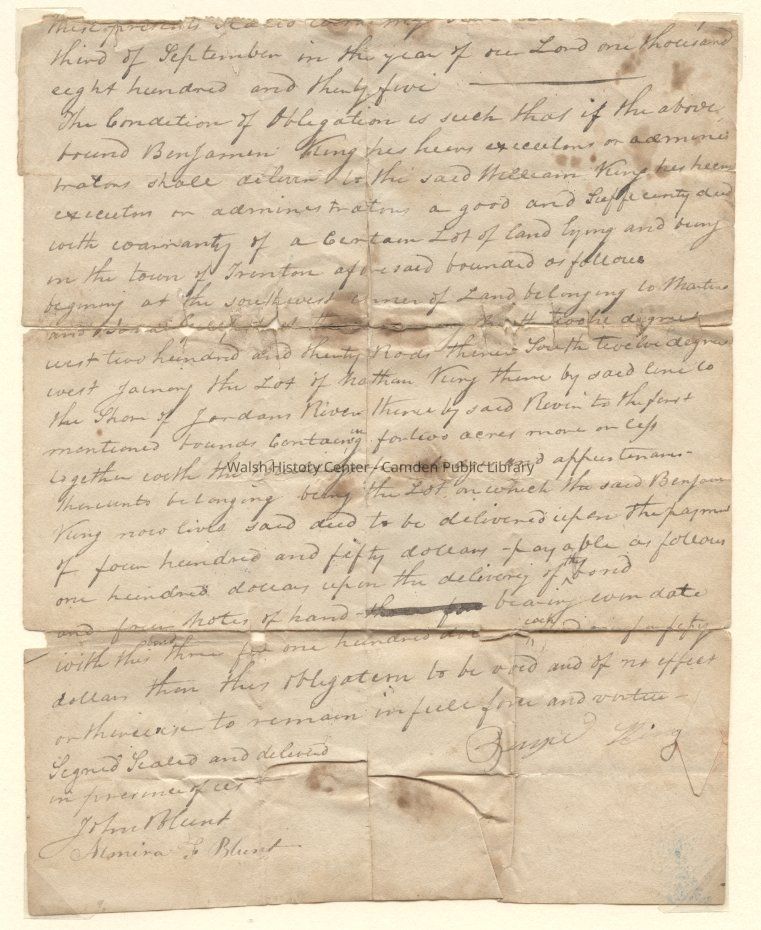 these presents sealed with my
third of September in the year of our Lord one thousand
eight hundred and thirty five
The Condition of Obligation is such that if the above
bound Benjamen King his heirs executors or admini
trators shall deliver to the said William King his heirs
executors or administrators a good and Suffecenty deed
with warranty of a Certain Lot of land lying and being
in the town of Trenton afforesaid bounded as follows
begining at the southwest corner of Land belonging to Martin
and twelve degrees
west two hundred and thirty Rods thence South twelve degrees
west Joining the Lot of Nathan King thence by said line to
the Shore of Jordans River thence by said River to the first
mentioned bounds Containing fortwo acres more or less
together with the appurtenans
thereunto belonging being the Lot on which the said Benjamin
King now lives said deed to be delivered upon the payment
of four hundred and fifty dollars payable as follows
one hundred dollars upon the delivery of the bond
and four notes of hand bearing even date
with this bond three for one hundred each fifty
dollars then this Obligation to be void and of no effect
or therwise to remain in full force and virtue
Benja King
Segned Sealed and delived
in presence of us
John Blunt
Almira F Blunt
Walsh History Center - Camden Public Library